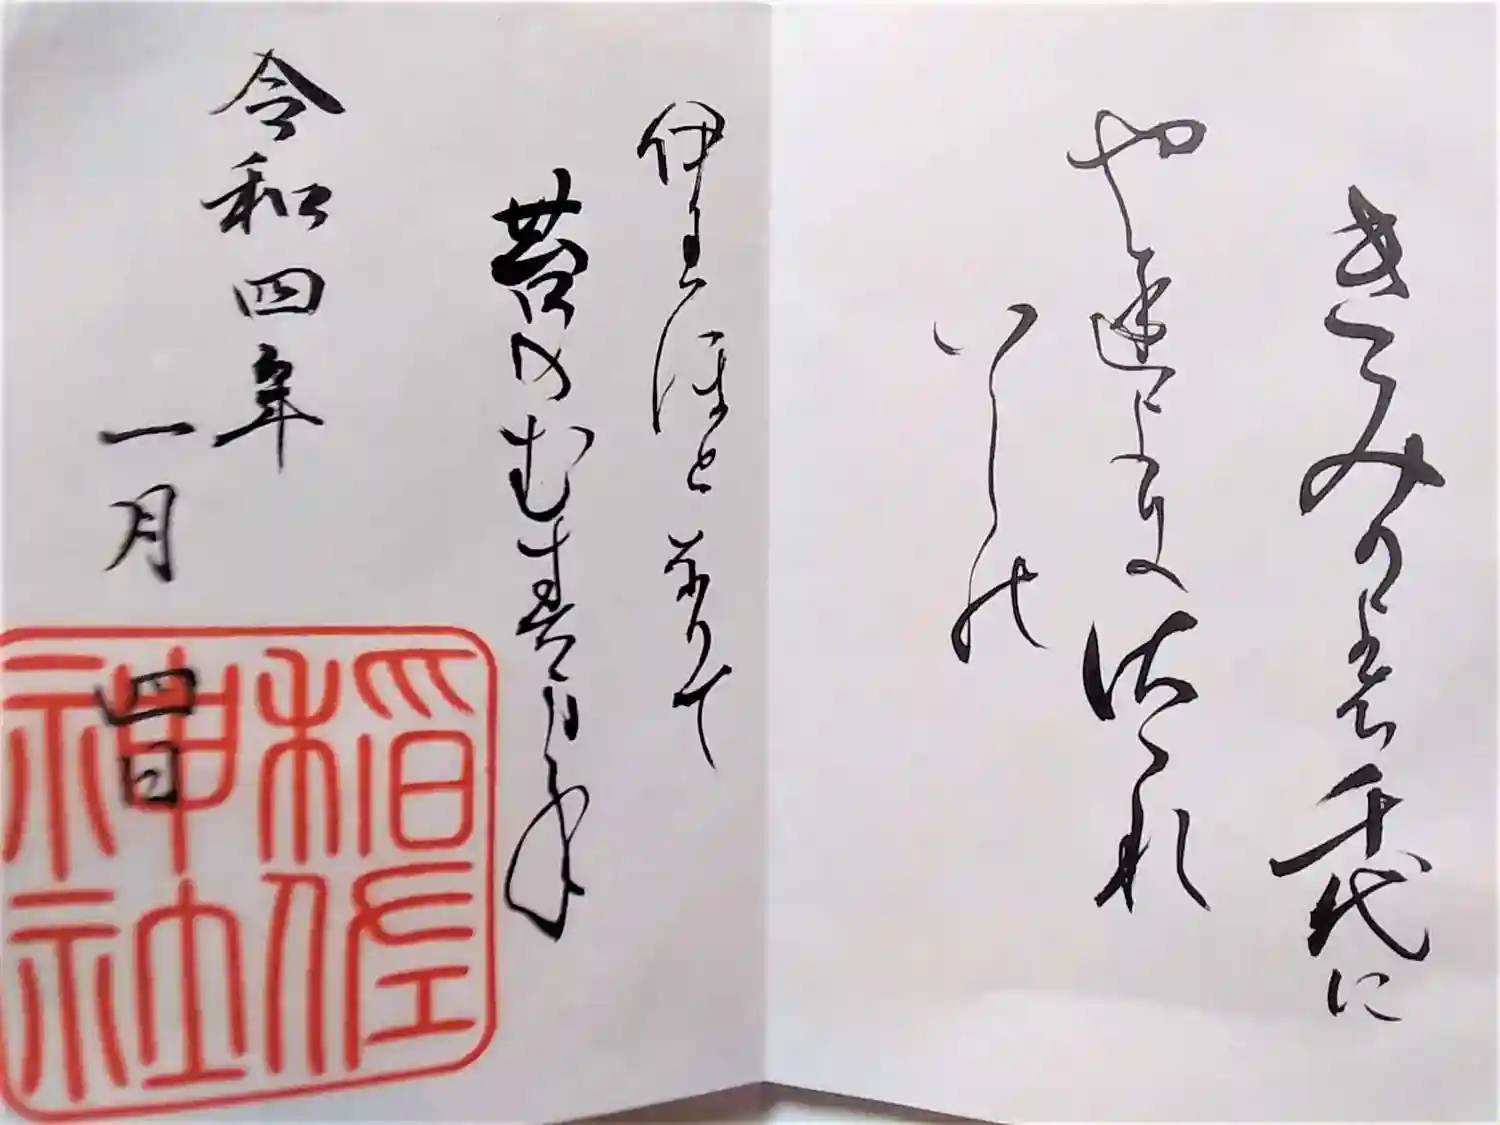 きみかよは千代に
やちよにさゝれ
いしの
伊わほとなりて
苔のむすまて
令和四年
一月四日
稲佐
神社